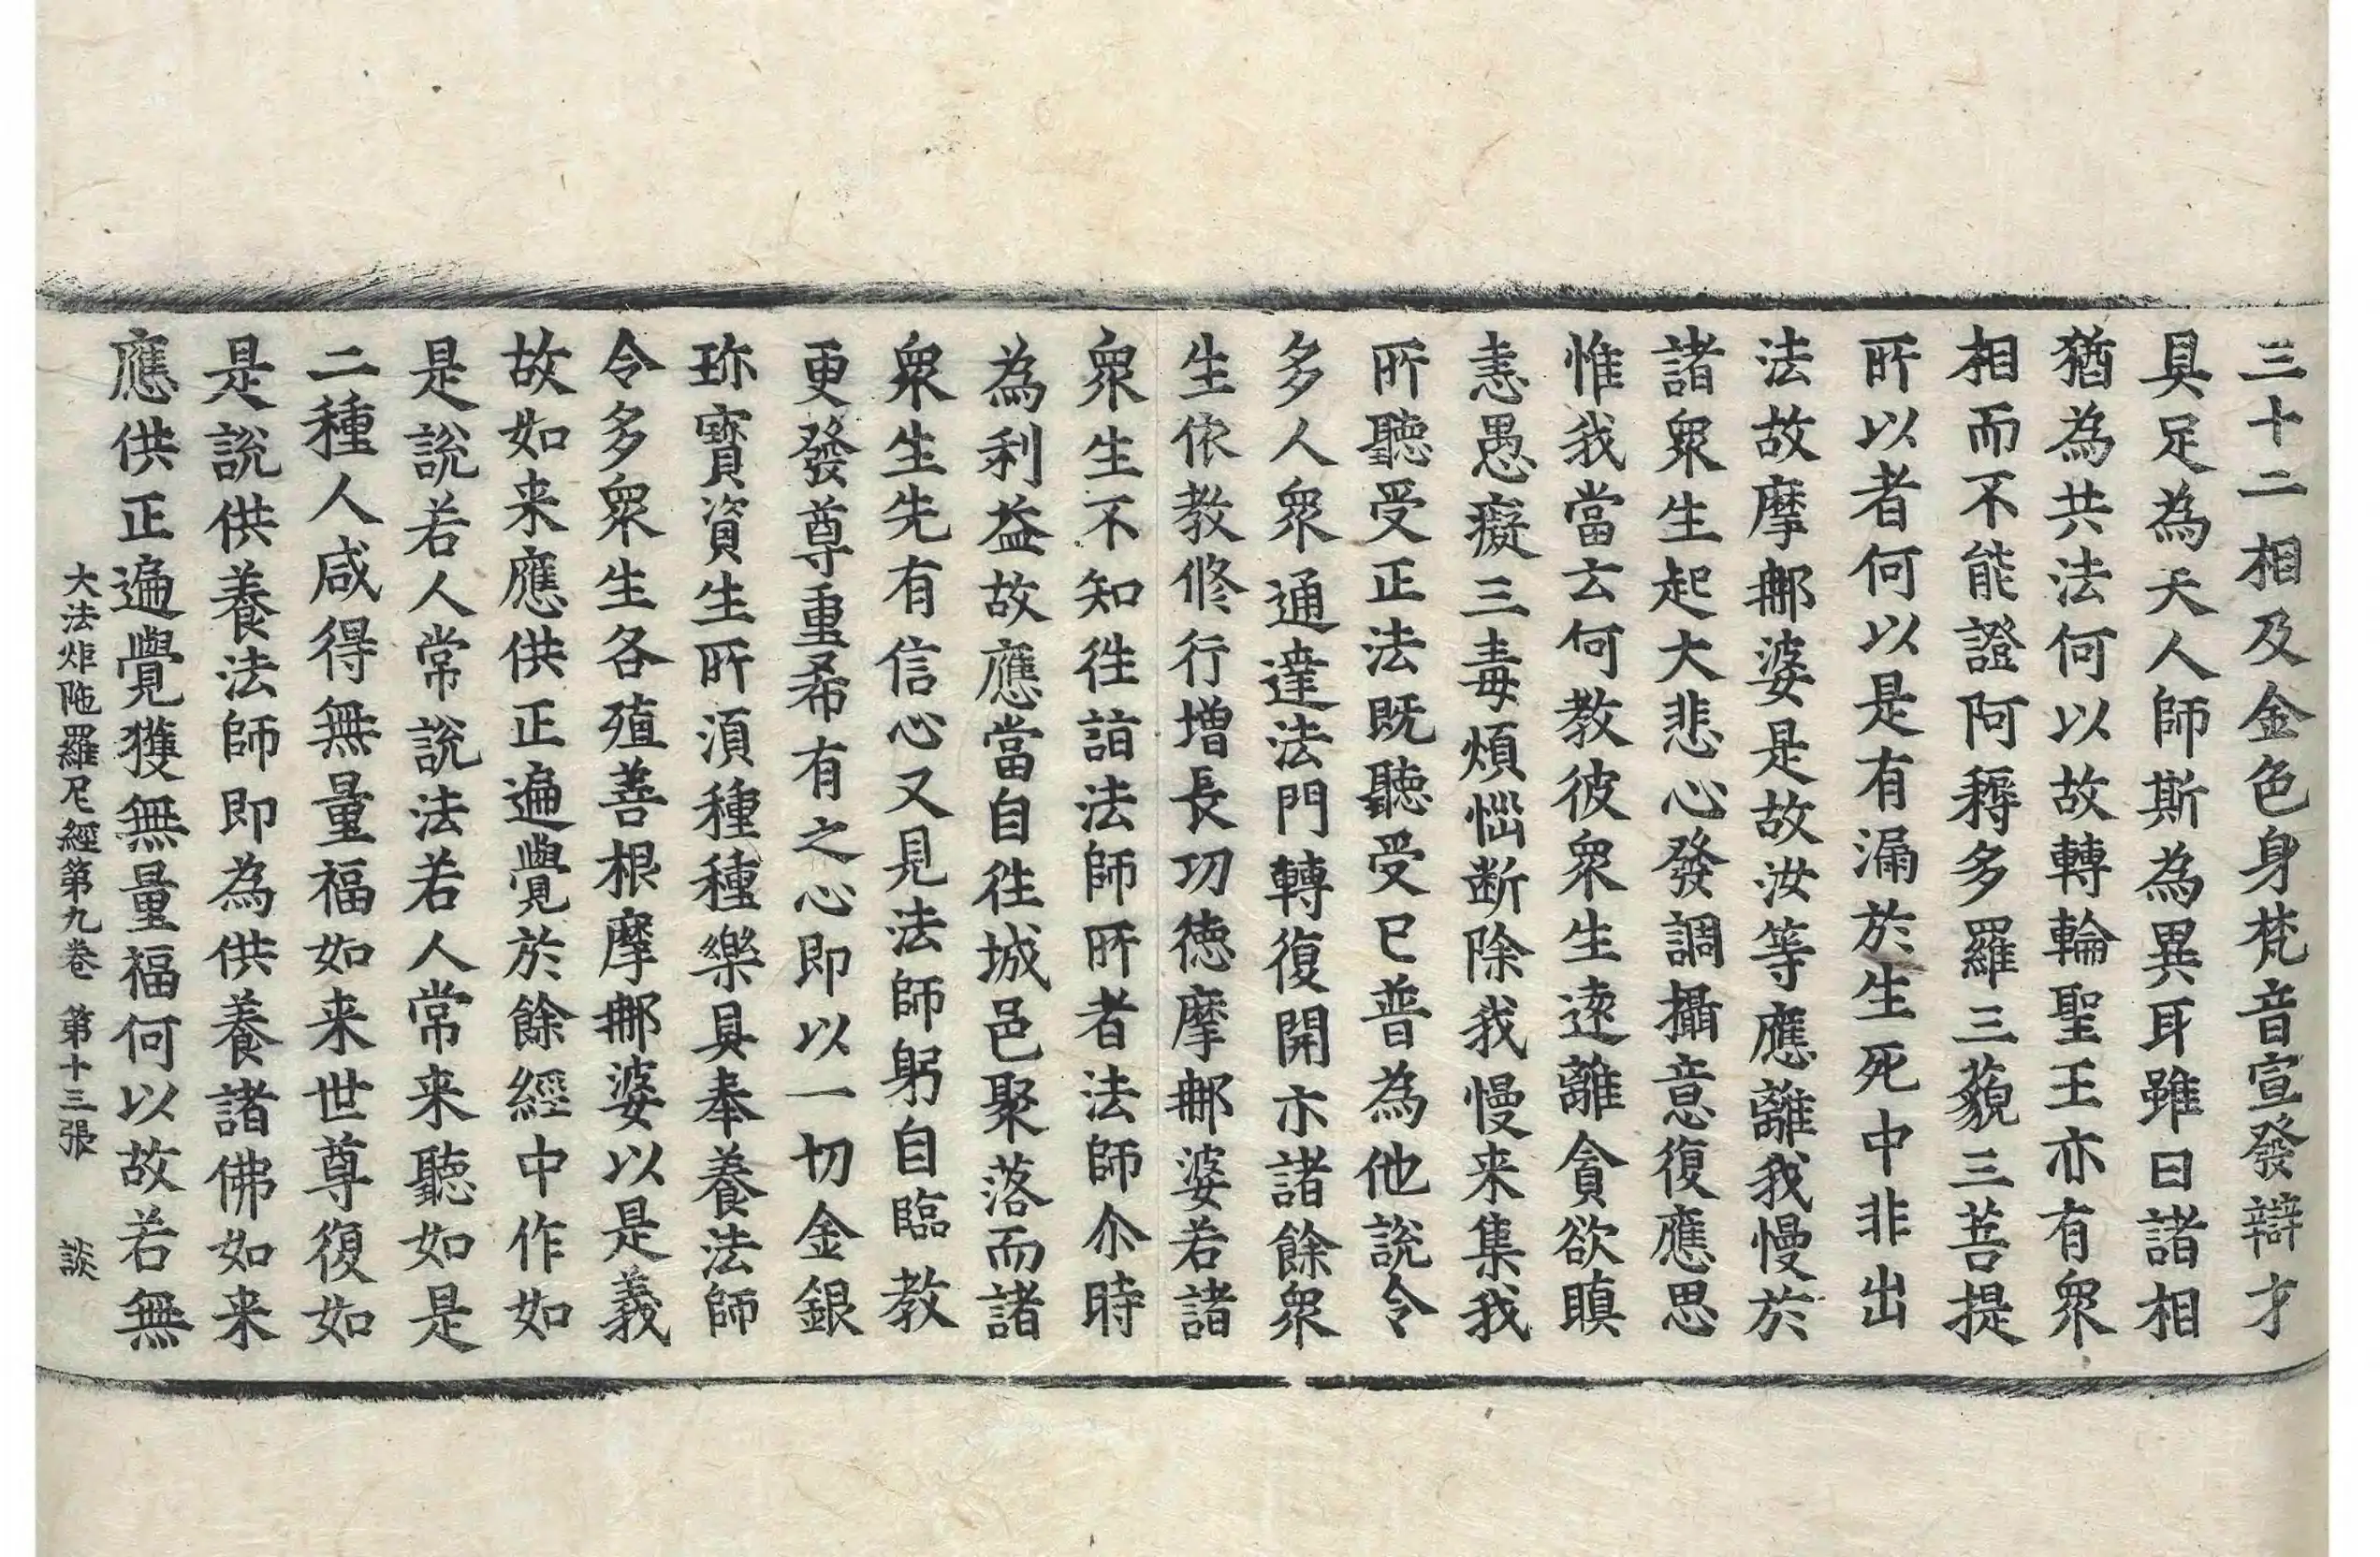 三十二相及金色身梵音宣發辯才
具足為天人師斯為異耳雖曰諸相
猶為共法何以故轉輪聖王亦有衆
相而不能證阿耨多羅三藐三菩提
所以者何以是有漏於生死中非出
法故摩那婆是故汝等應離我慢於
諸衆生起大悲心發調攝意復應思
惟我當云何教彼衆生遠離貪欲瞋
恚愚癡三毒煩惱断除我慢来集我
所聽受正法既聽受已普為他說令
多人衆通達法門轉復開示諸餘衆
生依教修行增長功德摩那婆若諸
衆生不知往詣法師所者法師尒時
為利益故應當自往城邑聚落而諸
衆生先有信心又見法師躬自臨教
更發尊重希有之心即以一切金銀
珎寳資生所須種種樂具奉養法師
令多衆生各殖善根摩那婆以是義
故如来應供正遍覺於餘經中作如
是說若人常說法若人常来聽如是
二種人咸得無量福如来世尊復如
是說供養法師即為供養諸佛如来
應供正遍覺獲無量福何以故若無
大法炬陁羅尼經第九卷 第十三張 談